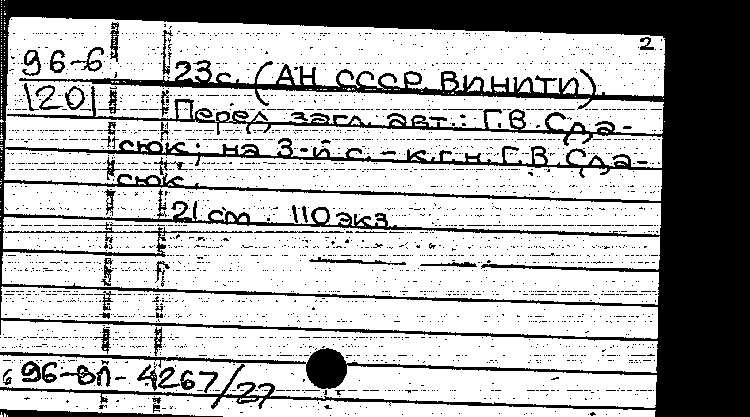 2
96-6
1201
23с. (АН СССР. ВИНИТИ).
Перед загл. авт.: Г.В. Сда-
сюк; на 3-й с. - к.г.н. Г.В. Сда-
сюк.
21 см. 110 экз.
б 96-8П-4267/27